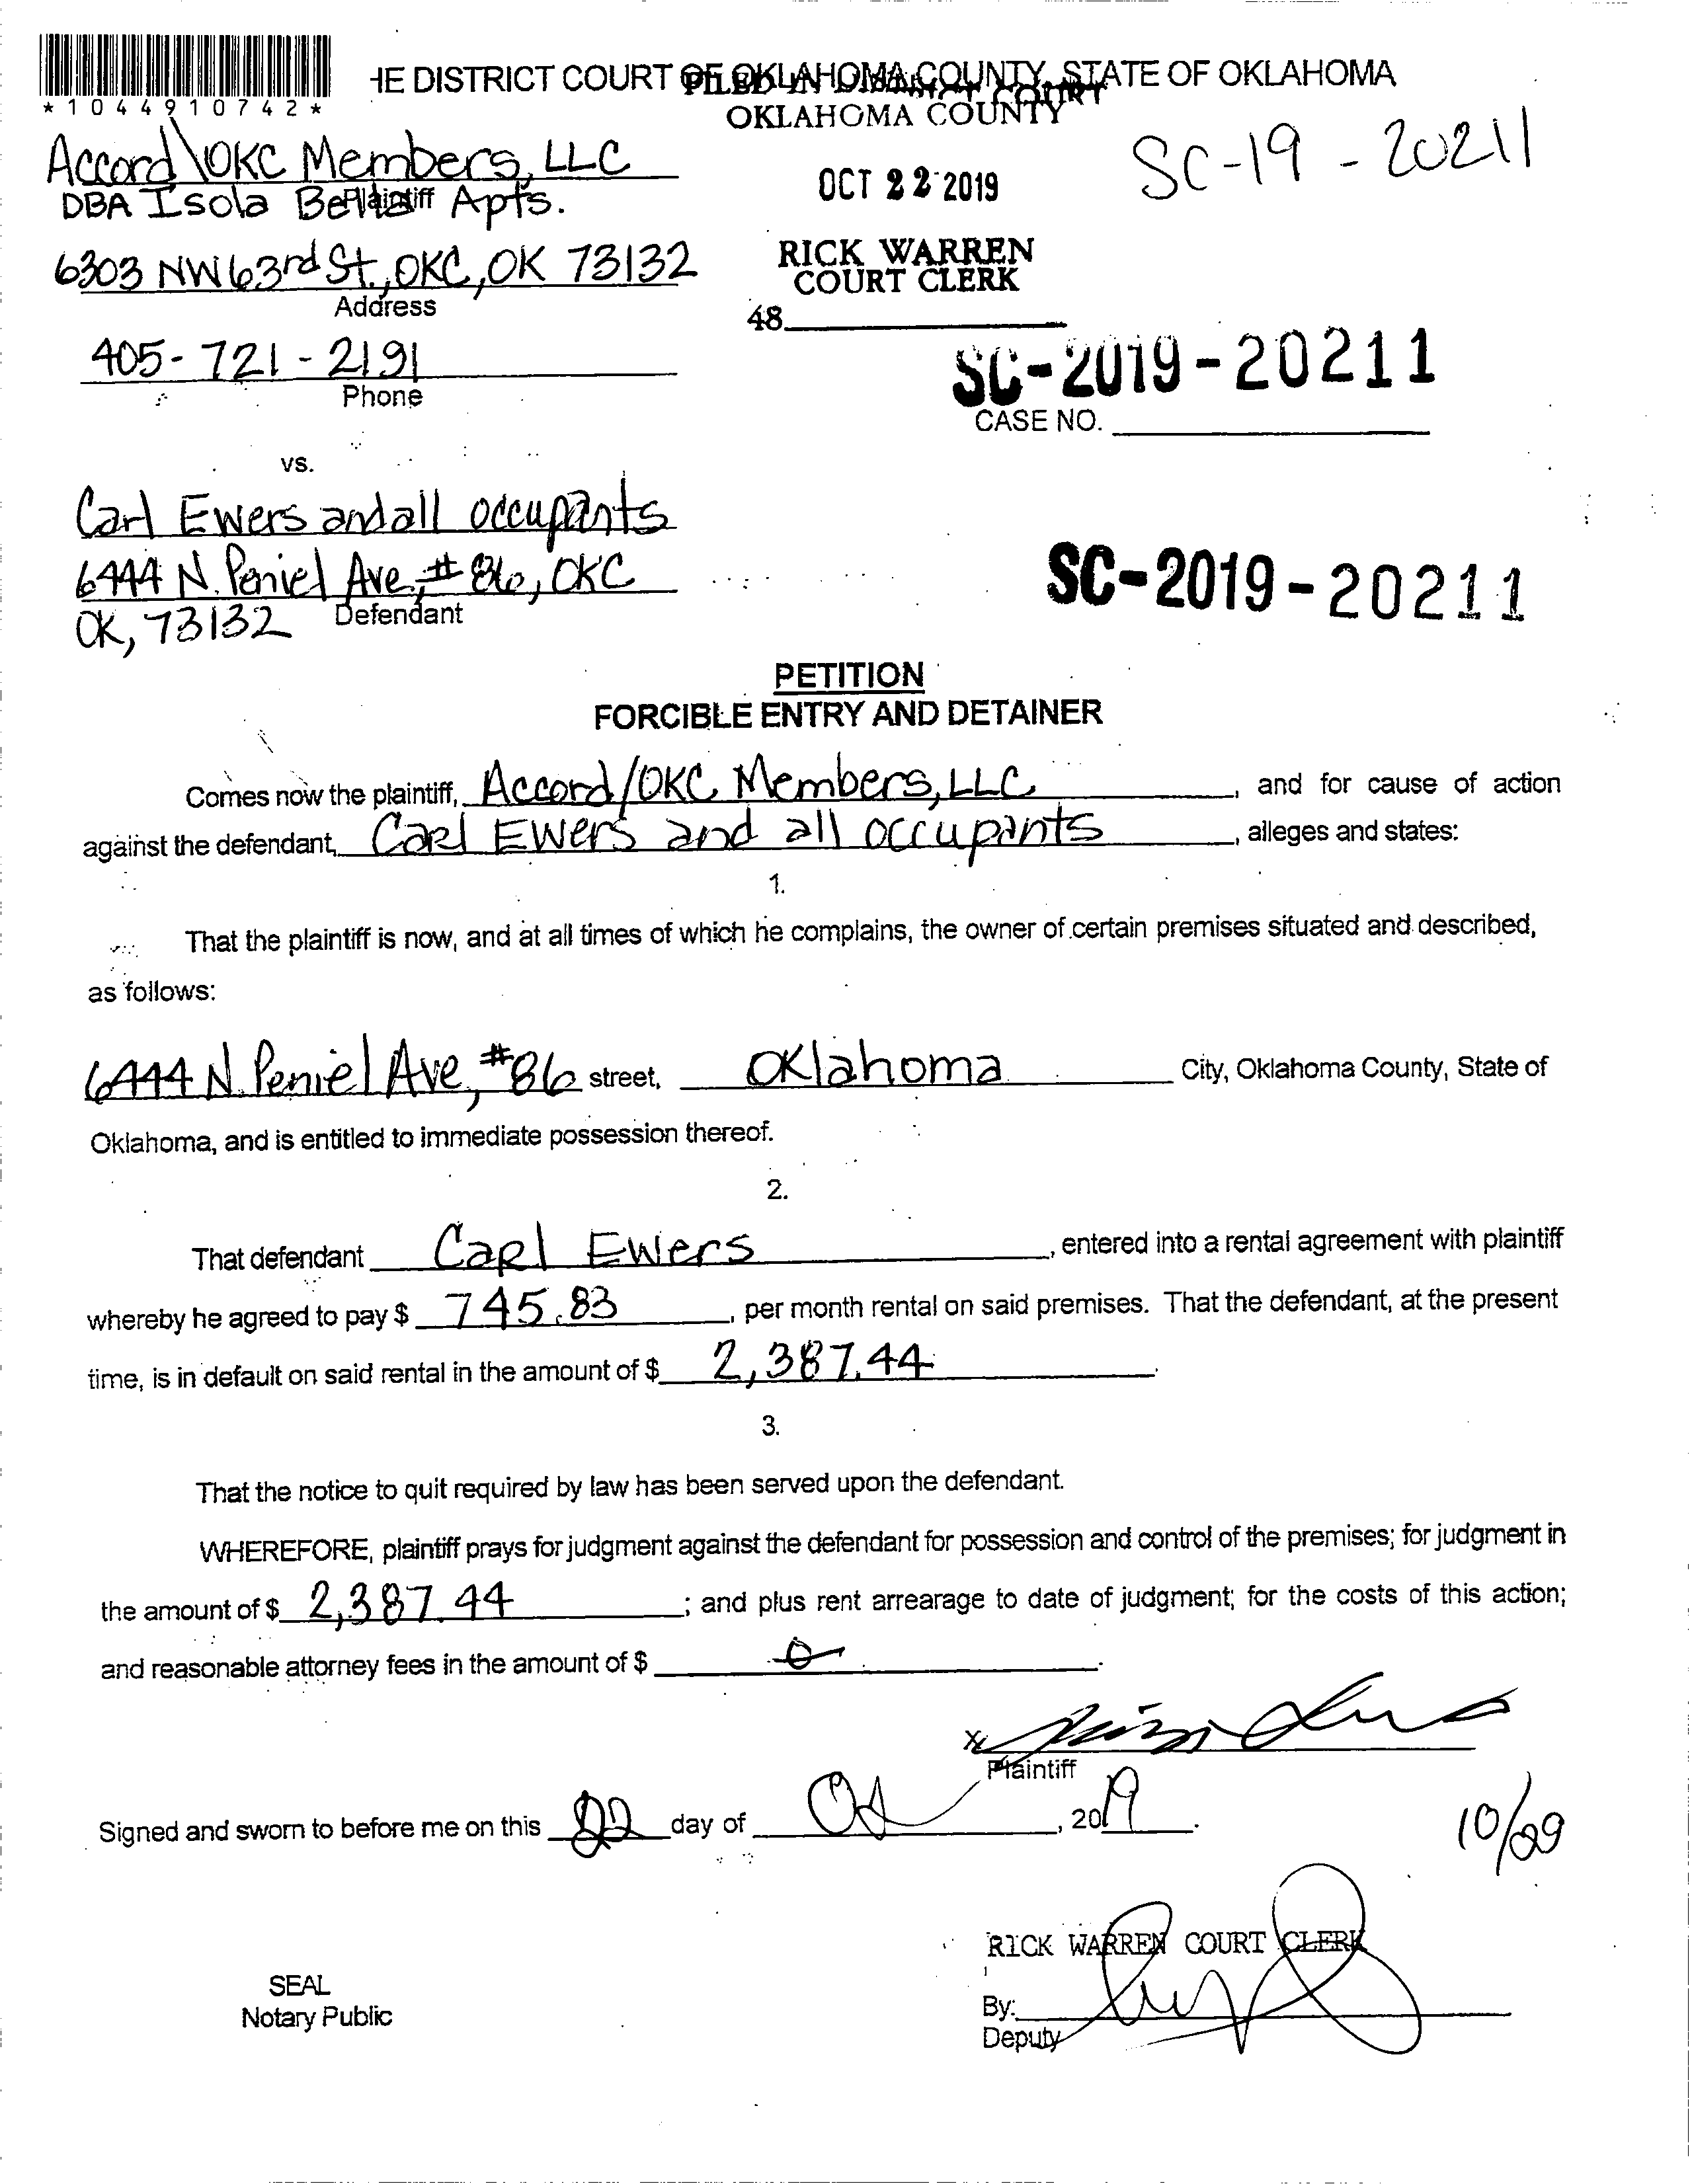 *1044910742*
HE DISTRICT COURT OF OKLAHOMA COUNTY, STATE OF OKLAHOMA
FILED IN DISTRICT COURT
OKLAHOMA COUNTY
Accord\OKC Members, LLC
DBA Isola Bella Apts.
Plaintiff
OCT 22 2019
SC-19-20211
6303 NW 63rd St., OKC, OK 73132
Address
RICK WARREN
COURT CLERK
48
405-721-2191
Phone
SC-2019-20211
CASE NO.
vs.
Carl Ewers and all occupants
6444 N. Peniel Ave, #86, OKC
OK, 73132
Defendant
SC-2019-20211
PETITION
FORCIBLE ENTRY AND DETAINER
Comes now the plaintiff, Accord/OKC Members, LLC, and for cause of action
against the defendant, Carl Ewers and all occupants, alleges and states:
1.
That the plaintiff is now, and at all times of which he complains, the owner of certain premises situated and described,
as follows:
6444 N. Peniel Ave, #86 street, Oklahoma City, Oklahoma County, State of
Oklahoma, and is entitled to immediate possession thereof.
2.
That defendant Carl Ewers, entered into a rental agreement with plaintiff
whereby he agreed to pay $ 745.83, per month rental on said premises. That the defendant, at the present
time, is in default on said rental in the amount of $ 2,387.44.
3.
That the notice to quit required by law has been served upon the defendant.
WHEREFORE, plaintiff prays for judgment against the defendant for possession and control of the premises; for judgment in
the amount of $ 2,387.44; and plus rent arrearage to date of judgment; for the costs of this action;
and reasonable attorney fees in the amount of $ 0.
X
Plaintiff
Signed and sworn to before me on this 22 day of Oct, 2019.
10/29
RICK WARREN COURT CLERK
SEAL
Notary Public
By:
Deputy